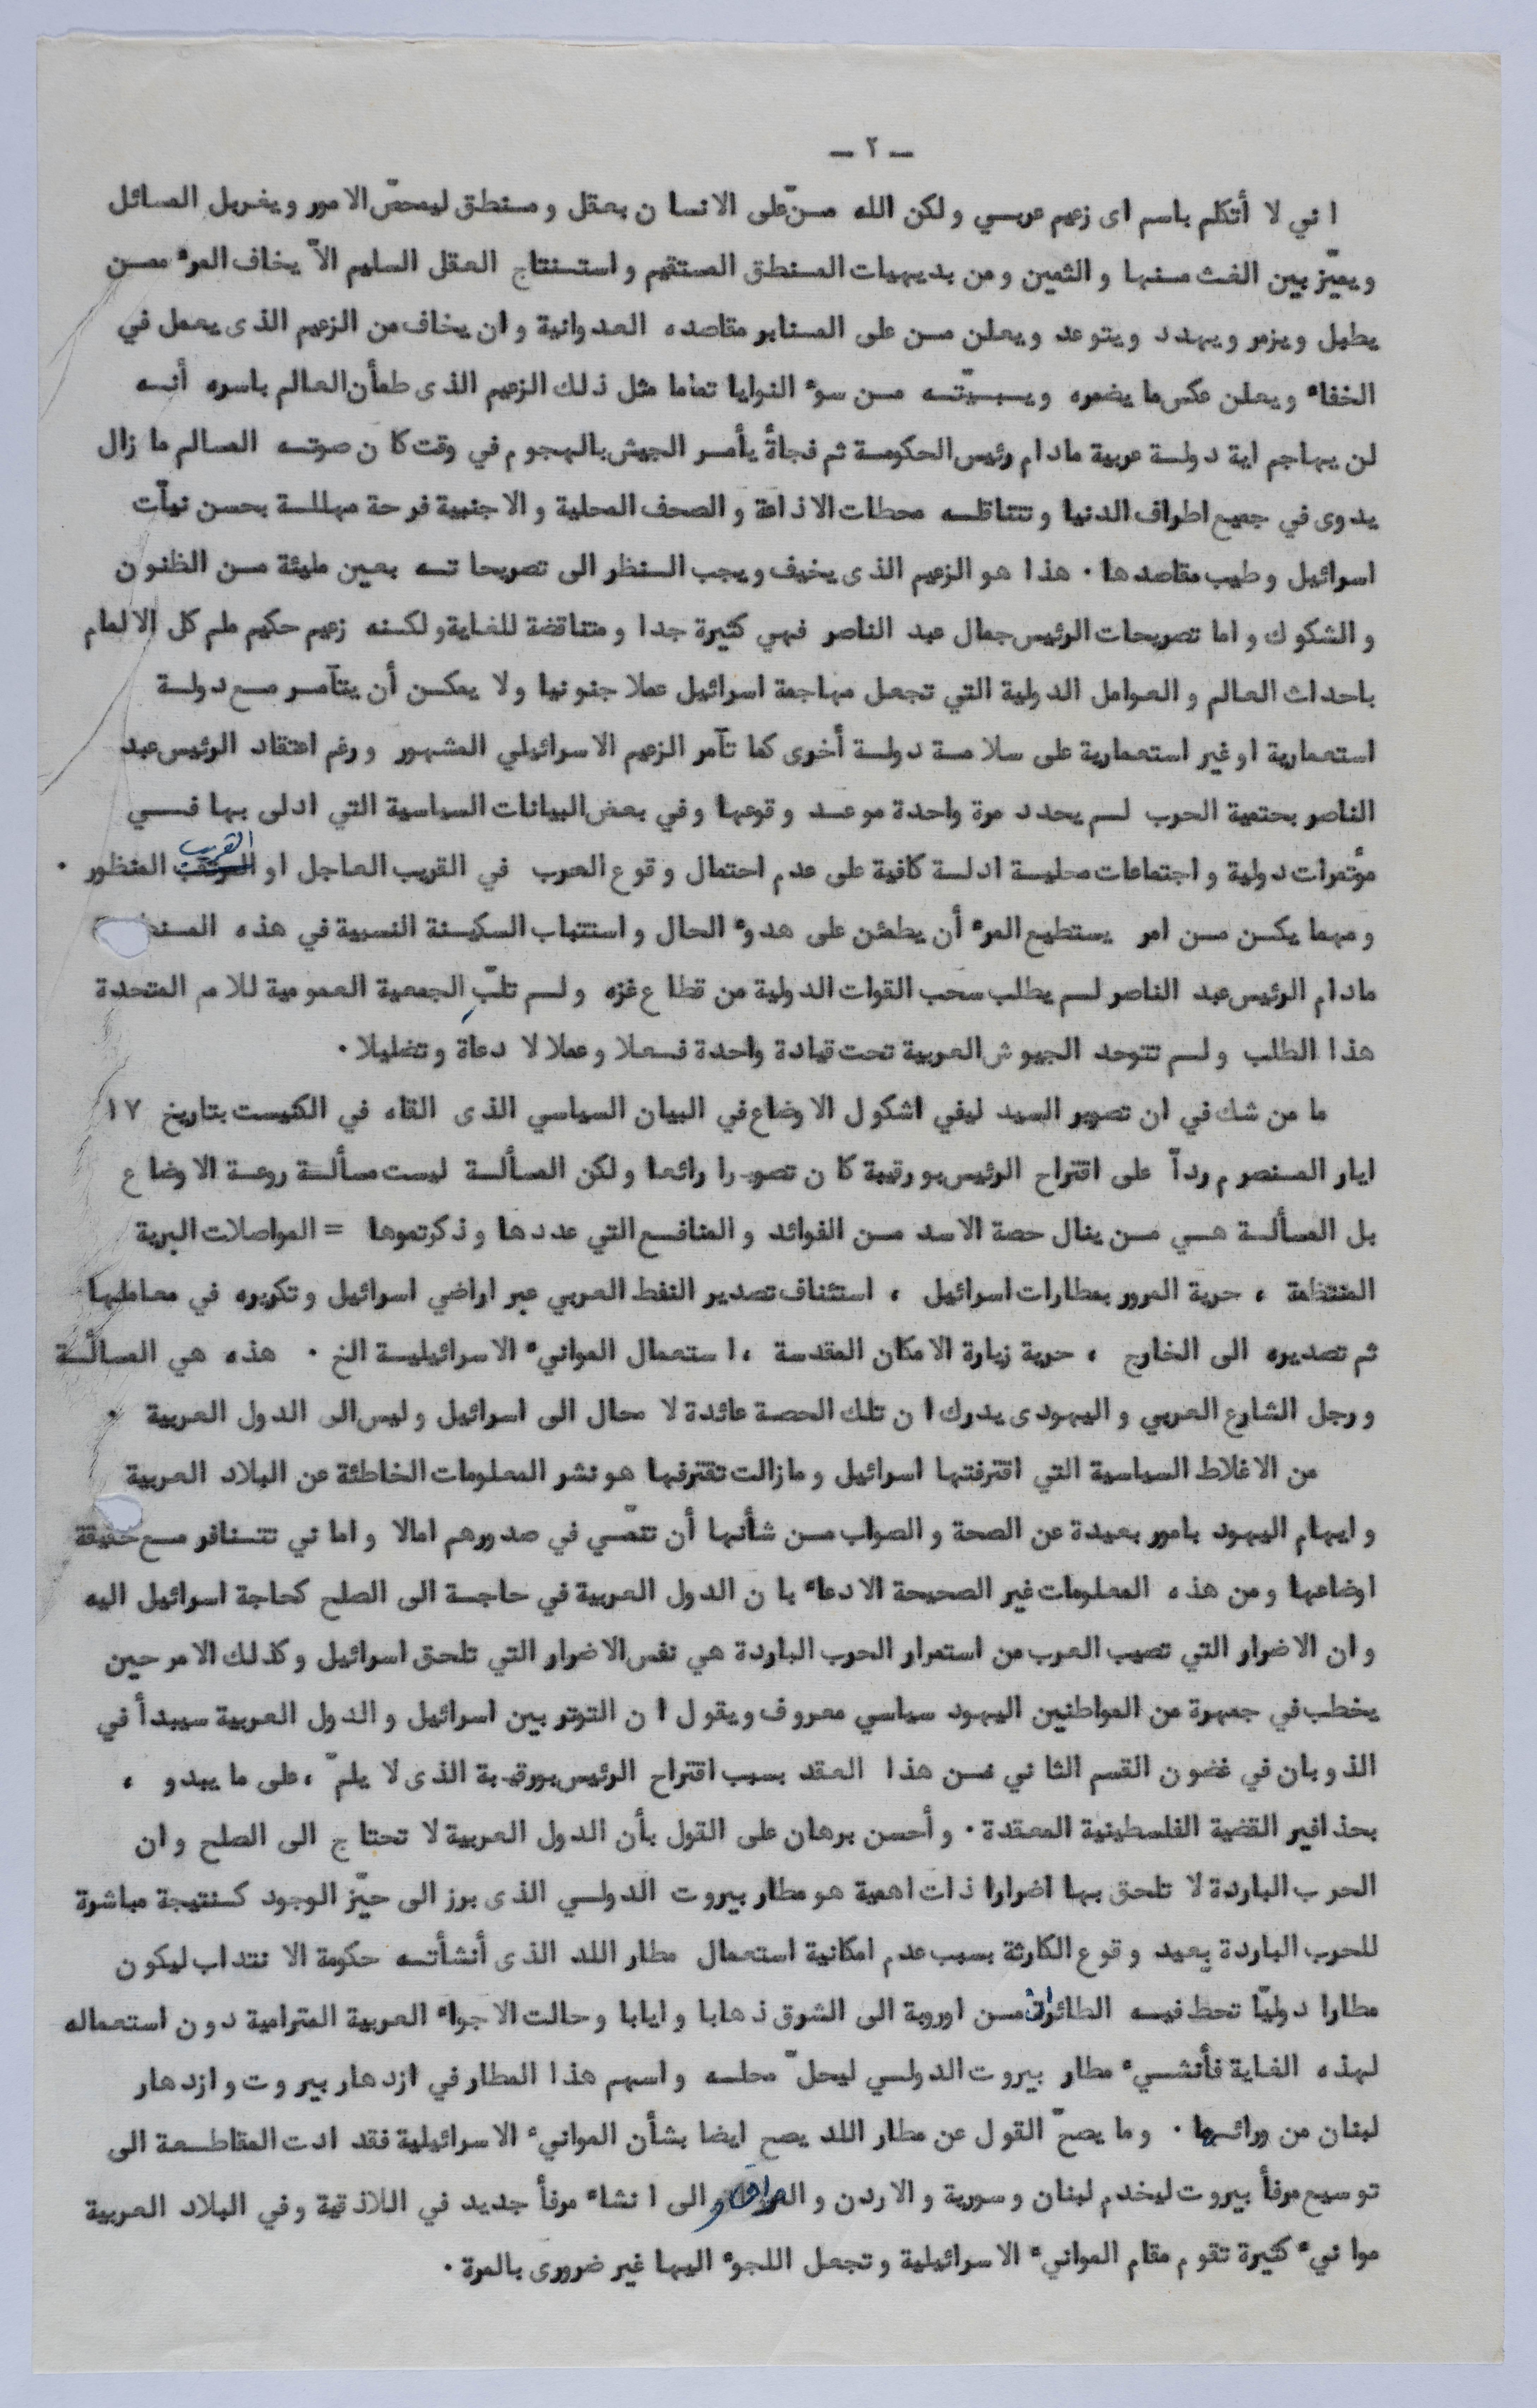 — ٢ —
اني لا أتكلم باسم اى زعيم عربي ولكن الله منّ على الانسان بعقل ومنطق ليمحصّ الامور ويغربل المسائل
ويميّز بين الغث منها والثمين ومن بديهيات المنطق المستقيم واستنتاج العقل السليم الاّ يخاف المرء ممن
يطبل ويزمر ويهدد ويتوعد ويعلن من على المنابر مقاصده العدوانية وان يخاف من الزعيم الذى يعمل في
الخفاء ويعلن عكس ما يضمره ويبيّته من سوء النوايا تماما مثل ذلك الزعيم الذى طمأن العالم باسره أنه
لن يهاجم اية دولة عربية مادام رئيس الحكومة ثم فجاةً يأمر الجيش بالهجوم في وقت كان صوته المسالم ما زال
يدوى في جميع اطراف الدنيا وتتناقله محطات الاذاعة والصحف المحلية والاجنبية فرحة مهللة بحسن نيآت
اسرائيل وطيب مقاصدها . هذا هو الزعيم الذى يخيف ويجب النظر الى تصريحاته بعين مليئة من الظنون
والشكوك واما تصريحات الرئيس جمال عبد الناصر فهي كثيرة جدا ومتناقضة للغاية ولكنه زعيم حكيم ملم كل الالمام
باحداث العالم والعوامل الدولية التي تجعل مهاجمة اسرائيل عملا جنونيا ولا يمكن أن يتآمر مع دولة
استعمارية او غير استعمارية على سلامة دولة أخرى كما تآمر الزعيم الاسرائيلي المشهور ورغم اعتقاد الرئيس عبد
الناصر بحتمية الحرب لم يحدد مرة واحدة موعد وقوعها وفي بعض البيانات السياسية التي ادلى بها في
مؤتمرات دولية واجتماعات محلية ادلة كافية على عدم احتمال وقوع الحرب في القريب العاجل او القريب المنظور .
ومهما يكن من امر يستطيع المرء أن يطمئن على هدوء الحال واستتباب السكينة النسبية في هذه
مادام الرئيس عبد الناصر لم يطلب سحب القوات الدولية من قطاع غزه ولم تلبّ الجمعية العمومية للامم المتحدة
هذا الطلب ولم تتوحد الجيوش العربية تحت قيادة واحدة فعلا وعملا لا دعاة وتضليلا .
ما من شك في ان تصوير السيد ليفي اشكول الاوضاع في البيان السياسي الذى القاه في الكنيست بتاريخ ١٧
ايار المنصرم ردآ على اقتراح الرئيس بورقيبة كان تصويرا رائعا ولكن المسألة ليست مسألة روعة الاوضاع
بل المسألة هي من ينال حصة الاسد من الفوائد والمنافع التي عددها وذكرتموها = المواصلات البرية
المنتظمة ، حرية المرور بمطارات اسرائيل ، استئناف تصدير النفط العربي عبر اراضي اسرائيل وتكريره في معاملها
ثم تصديره الى الخارج ، حرية زيارة الامكان المقدسة ، استعمال الموانيء الاسرائيلية الخ . هذه هي المسألة
ورجل الشارع العربي واليهودى يدرك ان تلك الحصة عائدة لا محال الى اسرائيل وليس الى الدول العربية .
من الاغلاط السياسية التي اقترفتها اسرائيل ومازالت تقترفها هو نشر المعلومات الخاطئة عن البلاد العربية
وايهام اليهود بامور بعيدة عن الصحة والصواب من شأنها أن تنمّي في صدورهم امالا واماني تتنافر مع حقيقة
اوضاعها ومن هذه المعلومات غير الصحيحة الادعاء بان الدول العربية في حاجة الى الصلح كحاجة اسرائيل اليه
وان الاضرار التي تصيب العرب من استمرار الحرب الباردة هي نفس الاضرار التي تلحق اسرائيل وكذلك الامر حين
يخطب في جمهرة من المواطنين اليهود سياسي معروف ويقول ان التوتر بين اسرائيل والدول العربية سيبدأ في
الذوبان في غضون القسم الثاني من هذا العقد بسبب اقتراح الرئيس بورقيبة الذى لا يلمّ ، على ما يبدو ،
بحذافير القضية الفلسطينية المعقدة . وأحسن برهان على القول بأن الدول العربية لا تحتاج الى الصلح وان
الحرب الباردة لا تلحق بها اضرارا ذات اهمية هو مطار بيروت الدولي الذى برز الى حيّز الوجود كنتيجة مباشرة
للحرب الباردة بعيد وقوع الكارثة بسبب عدم امكانية استعمال مطار اللد الذى أنشأته حكومة الانتداب ليكون
مطارا دوليّا تحط فيه الطائرات من اوروبة الى الشرق ذهابا وايابا وحالت الاجواء العربية المترامية دون استعماله
لهذه الغاية فأنشيء مطار بيروت الدولي ليحلّ محله واسهم هذا المطار في ازدهار بيروت وازدهار
لبنان من ورائها . وما يصحّ القول عن مطار اللد يصح ايضا بشأن الموانيء الاسرائيلية فقد ادت المقاطعة الى
توسيع مرفأ بيروت ليخدم لبنان وسورية والاردن والعراق و الى انشاء مرفأ جديد في اللاذقية وفي البلاد العربية
موانيء كثيرة تقوم مقام الموانيء الاسرائيلية وتجعل اللجوء اليها غير ضرورى بالمرة .